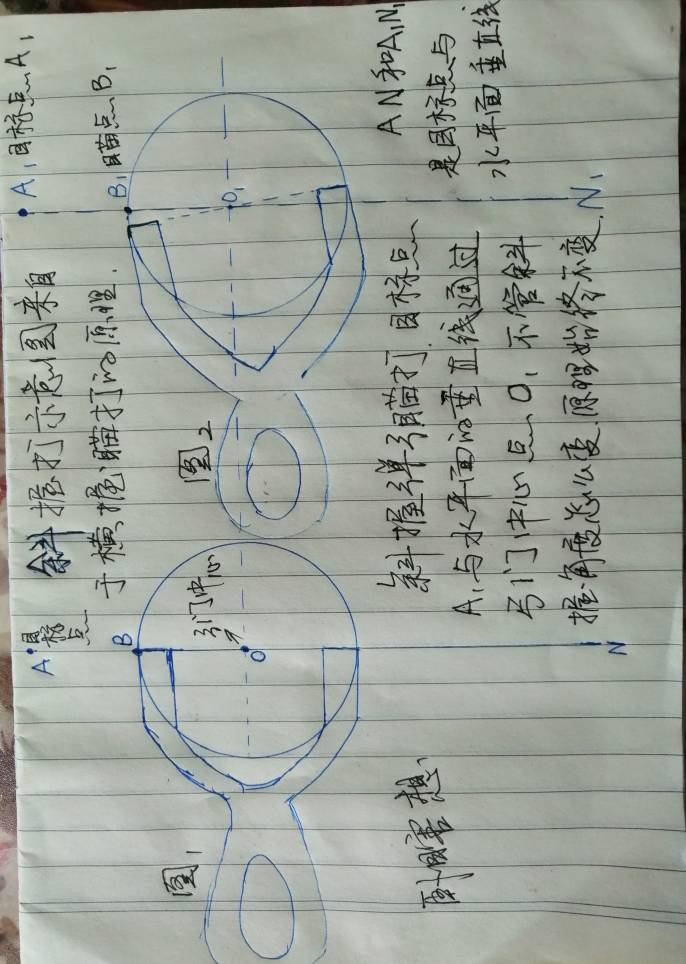 A 目标点
斜握打示意图来自
于横握瞄打的原理.
A₁ 目标点A₁
B₁ 瞄点B₁
B
弓门中心
O
N
图1
图2
O₁
N₁
AN和A₁N₁
是目标点与
水平面垂直线
斜握弹弓瞄打,目标点
A₁与水平面的垂直线通过
弓门中心点O,不管斜
握角度怎么变,原理始终不变.